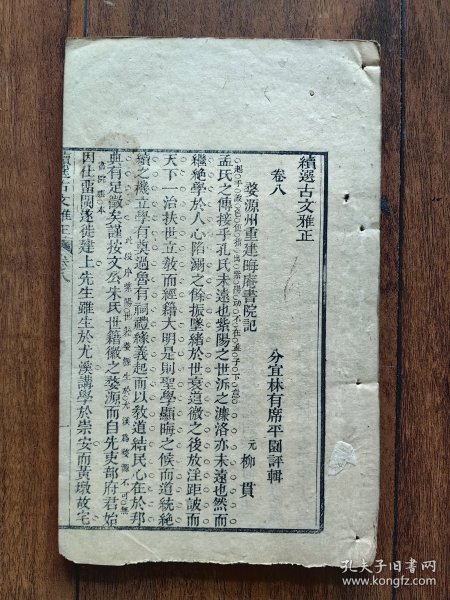 續選古文雅正
卷八
分宜林有席平園評輯
婺源州重建晦庵書院記
元 柳貫
孟氏之傳接乎孔氏未遠也紫陽之世派之濂洛亦未遠也然而
繼絶學於人心陷溺之餘振墜緒於世衰道微之後放淫距詖而
天下一治扶世立教而經籍大明是則聖學顯晦之候而道統絶
續之機立學有奠過魯有祠禮緣義起而以教道結民心在於邦
典有足徵矣謹按文公朱氏世籍徽之婺源而自先吏部府君始
因仕留閩遂徙建上先生雖生於尤溪講學於崇安而黃墩故宅
續選古文雅正 卷八
孔夫子旧书网
www.kongfz.com